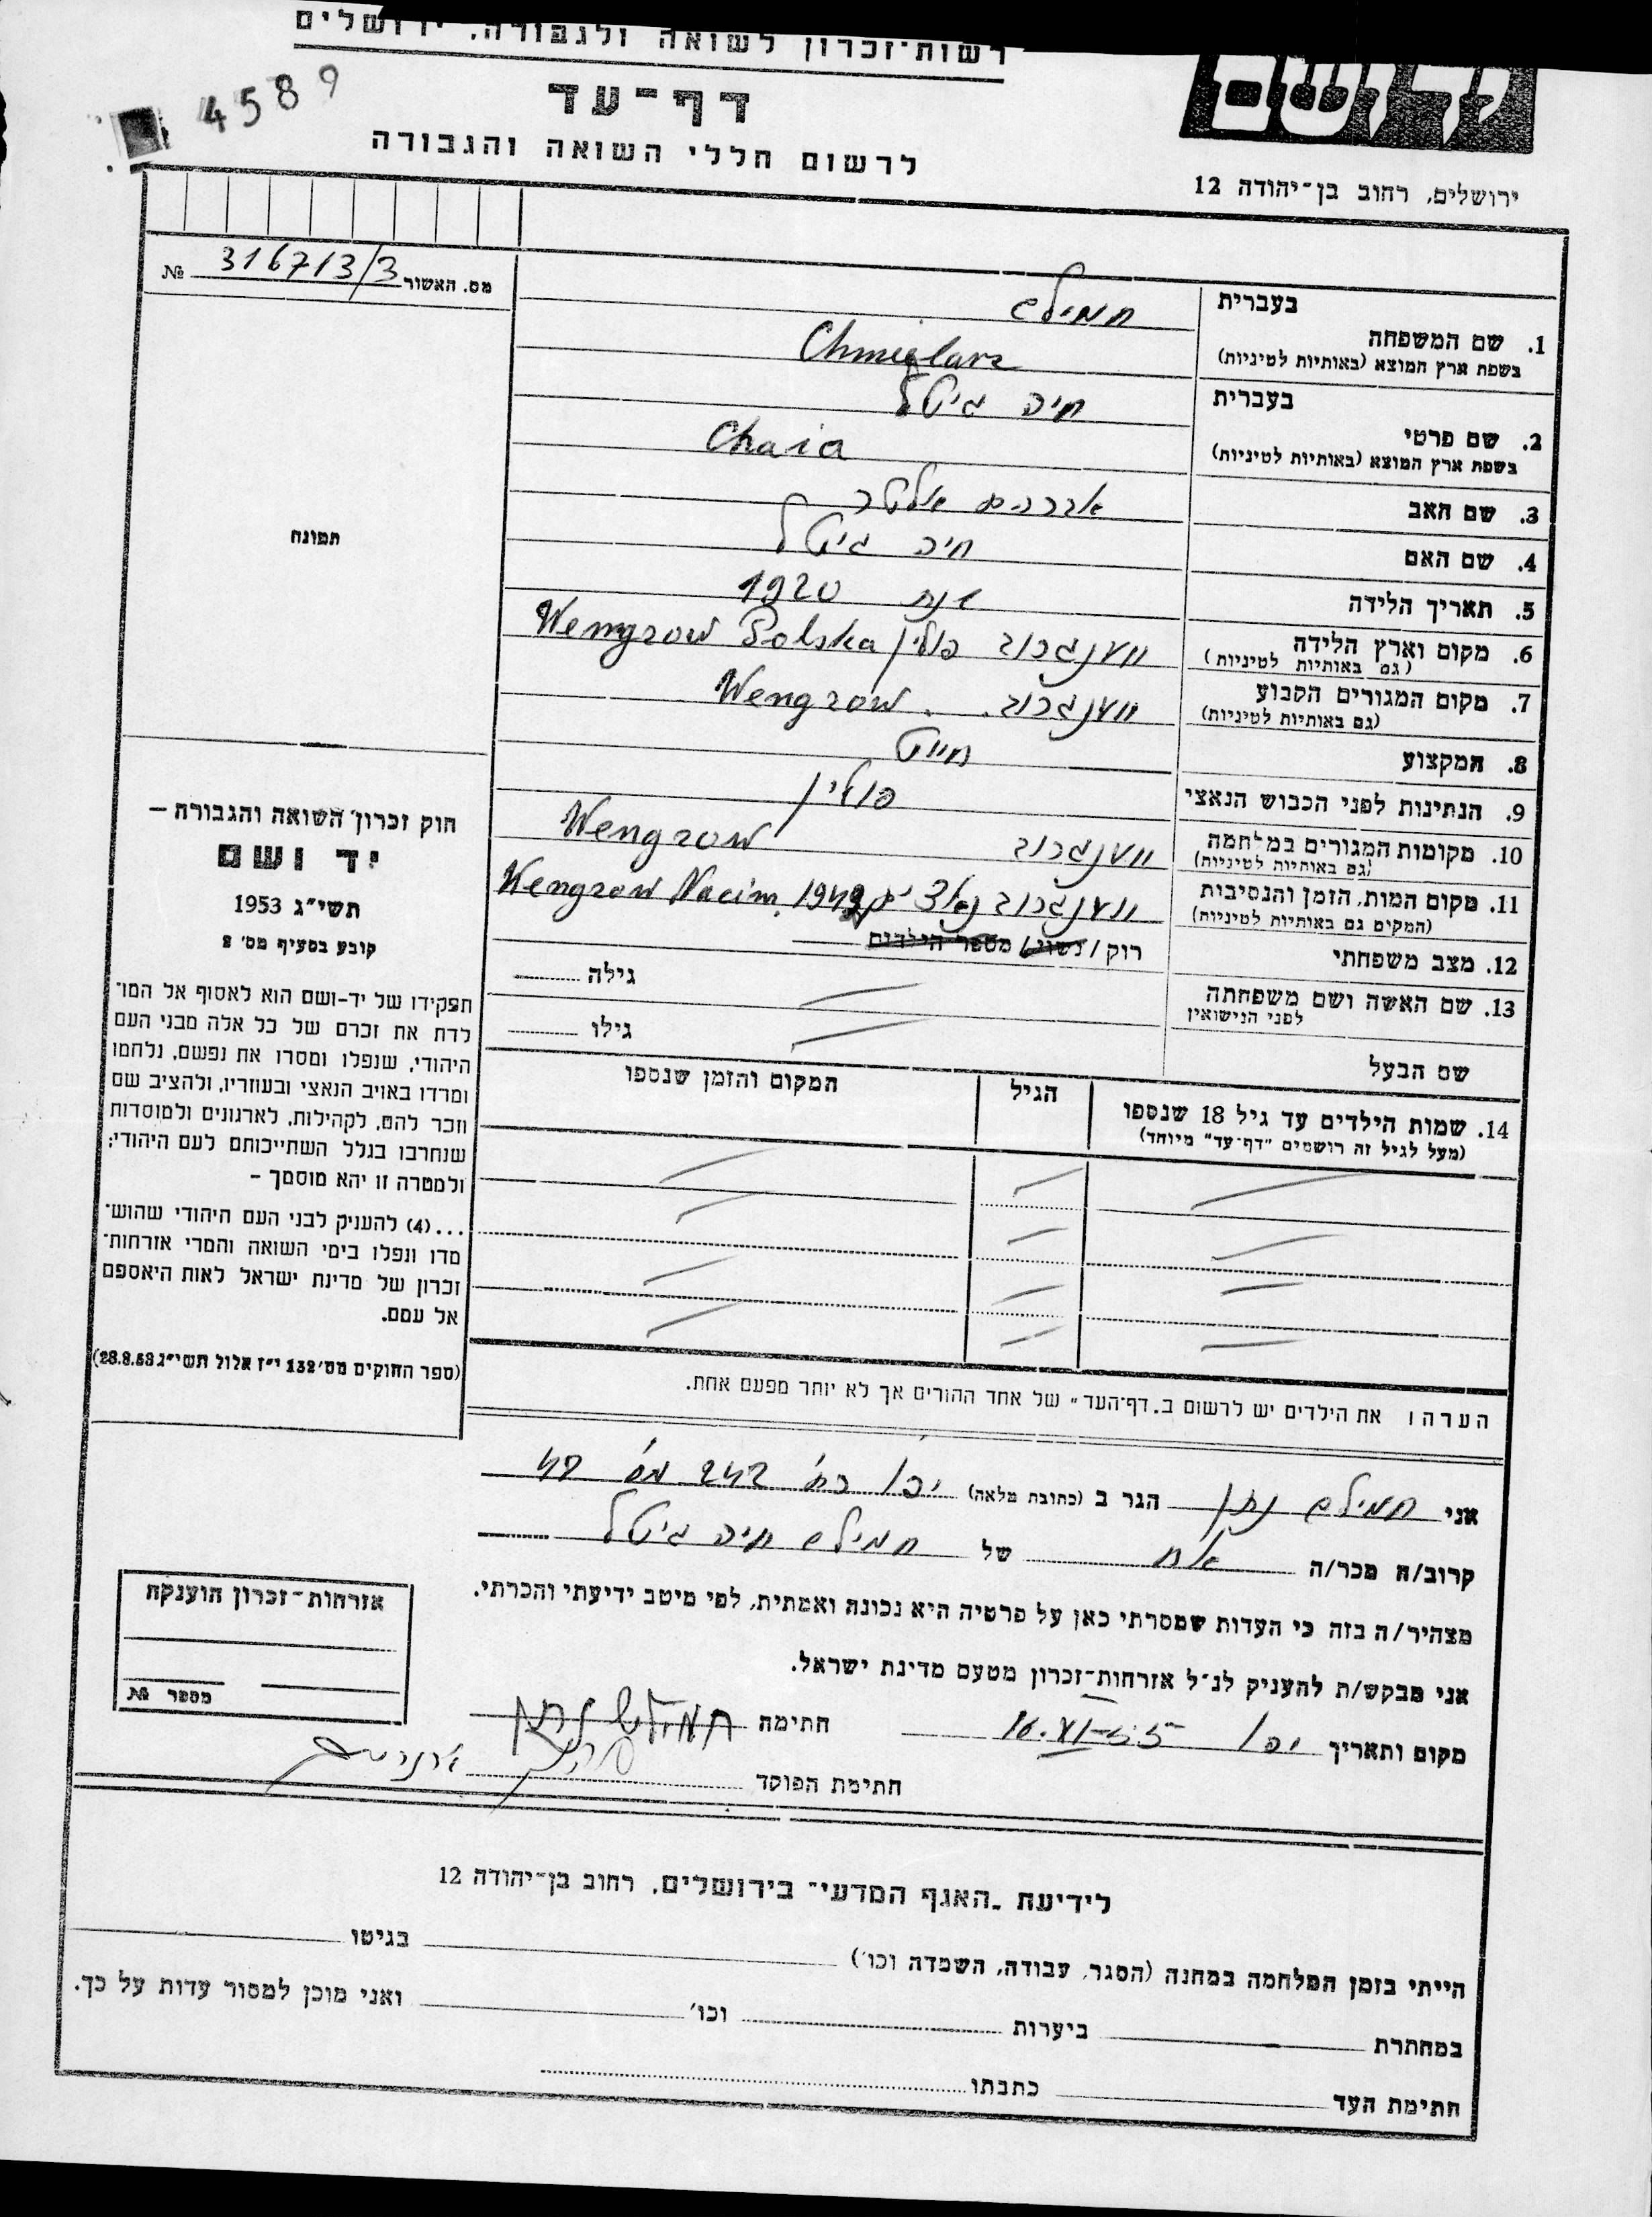 רשות־זכרון לשואה ולגבורה, ירושלים
דף־עד
לרשום חללי השואה והגבורה
4589
ירושלים, רחוב בן־יהודה 12
מס. האשור 316713/3 №
בעברית
1. שם המשפחה
בשפת ארץ המוצא (באותיות לטיניות)
בעברית חיה גיטל
2. שם פרטי
בשפת ארץ המוצא (באותיות לטיניות) Chaia
3. שם האב אברהם אלטר
4. שם האם חיה גיטל
5. תאריך הלידה שנת 1920
6. מקום וארץ הלידה ווענגרוב פולין Wengrow Polska
(גם באותיות לטיניות)
7. מקום המגורים הקבוע ווענגרוב. Wengrow
(גם באותיות לטיניות)
8. המקצוע חייט
9. הנתינות לפני הכבוש הנאצי פולין
10. מקומות המגורים במלחמה ווענגרוב Wengrow
(גם באותיות לטיניות)
11. מקום המות, הזמן והנסיבות ווענגרוב Wengrow Nacim
(המקים גם באותיות לטיניות)
12. מצב משפחתי רוק / נשוי / מספר הילדים
13. שם האשה ושם משפחתה גילה
לפני הנישואין
שם הבעל גילו
14. שמות הילדים עד גיל 18 שנספו הגיל המקום והזמן שנספו
(מעל לגיל זה רושמים "דף־עד" מיוחד)
תמונה
חוק זכרון השואה והגבורה –
יד ושם
תשי"ג 1953
קובע בסעיף מס' 2
תפקידו של יד-ושם הוא לאסוף אל המו־
לדת את זכרם של כל אלה מבני העם
היהודי, שנפלו ומסרו את נפשם, נלחמו
ומרדו באויב הנאצי ובעוזריו, ולהציב שם
וזכר להם, לקהילות, לארגונים ולמוסדות
שנחרבו בגלל השתייכותם לעם היהודי;
ולמטרה זו יהא מוסמך –
...(4) להעניק לבני העם היהודי שהוש־
מדו ונפלו בימי השואה והמרי אזרחות־
זכרון של מדינת ישראל לאות היאספם
אל עמם.
(ספר החוקים מס' 132 י"ז אלול תשי"ג 28.8.53)
הערה ! את הילדים יש לרשום ב.דף־העד" של אחד ההורים אך לא יותר מפעם אחת.
אני חמילש נתן הגר ב (כתובת מלאה) יפו רח' 242 מס' 47
קרוב/ה מכר/ה אח של חמילש חיה גיטל
מצהיר/ה בזה כי העדות שמסרתי כאן על פרטיה היא נכונה ואמתית, לפי מיטב ידיעתי והכרתי.
אני מבקש/ת להעניק לנ"ל אזרחות־זכרון מטעם מדינת ישראל.
מקום ותאריך יפו 16.VI-55 חתימה חמילש נתן
חתימת הפוקד
אזרחות־זכרון הוענקה
מספר №
לידיעת „האגף המדעי" בירושלים, רחוב בן־יהודה 12
הייתי בזמן המלחמה במחנה (הסגר, עבודה, השמדה וכו') בגיטו
במחתרת ביערות וכו' ואני מוכן למסור עדות על כך.
חתימת העד כתבתו